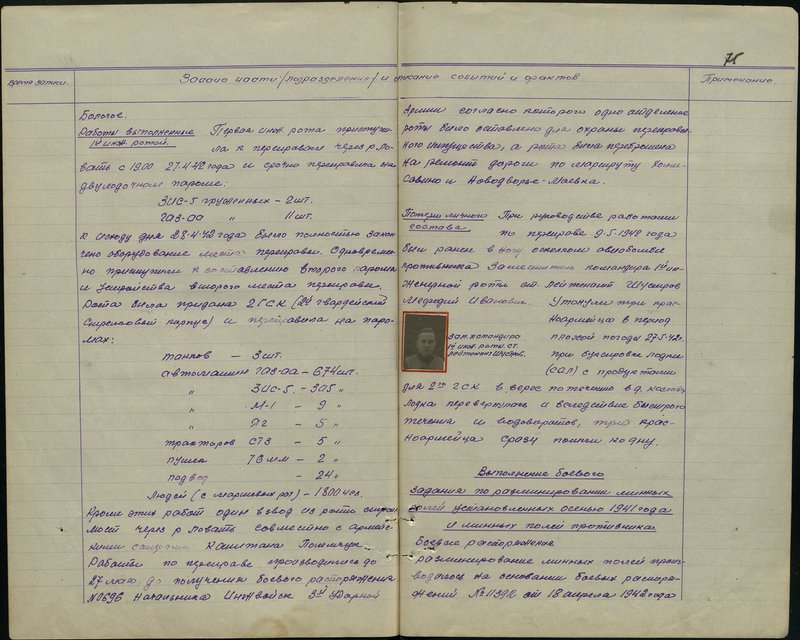 75
Время записи.
Задача части /подразделения/ и описание событий и фактов
Примечание
Бологое.
Работы выполненные
1й инж. ротой.
Первая инж рота приступи-
ла к переправам через р. Ло-
вать с 19.00 27.4.42 года и срочно переправила на
двухлодочном пароме:
ЗИС-5 груженных – 2 шт.
ГАЗ-аа " 11 шт.
К исходу дня 28.4.42 года было полностью закон-
чено оборудование места переправы. Одновремен-
но приступили к составлению второго парома
и устройства второго места переправы.
Рота была придана 2 ГСК (2й гвардейский
Стрелковый корпус) и переправила на паро-
мах:
танков – 3 шт.
автомашин ГАЗ-аа – 674 шт.
" ЗИС-5. – 305 "
" М-1 – 9 "
" – 5 "
тракторов СТЗ – 5 "
пушек 76 мм – 2 "
подвод – 24 "
Людей (с маршевых рот) – 1800 чел.
Кроме этих работ один взвод из роты
мост через р. Ловать совместно с армейс-
кими Капитана
Работы по переправе производились до
27 мая до получения боевого распоряжения
№0696 Начальника Инжвойск 3й Ударной
Армии согласно которого одно отделение
роты было оставлено для охраны переправоч-
ного имущества, а рота была переброшена
на ремонт дороги по маршруту Холм-
Савино и Новодворье-Маевка.
Потери личного
состава.
При руководстве работами
по переправе 9.5.1942 года
был ранен в ногу осколком авиабомбы
противника Заместитель командира 1й ин-
женерной роты ст. лейтенант Шустров
Иванович. Утонули три крас-
ноармейца в период
плохой погоды 27.5.42г.
при буксировке лодки
(САЛ) с продуктами
Зам. командира
1й инж. роты ст.
лейтенант Шустров.
для 2го ГСК в верх по течению в д. Козлово
Лодка перевернулась и вследствие быстрого
течения и водоворотов, три крас-
ноармейца сразу пошли ко дну.
Выполнение боевого
задания по разминированию минных
полей установленных осенью 1941 года
и минных полей противника
Боевые распоряжения
разминирование минных полей произ-
водилось на основании боевых распоря-
жений №11392 от 18 апреля 1942 года